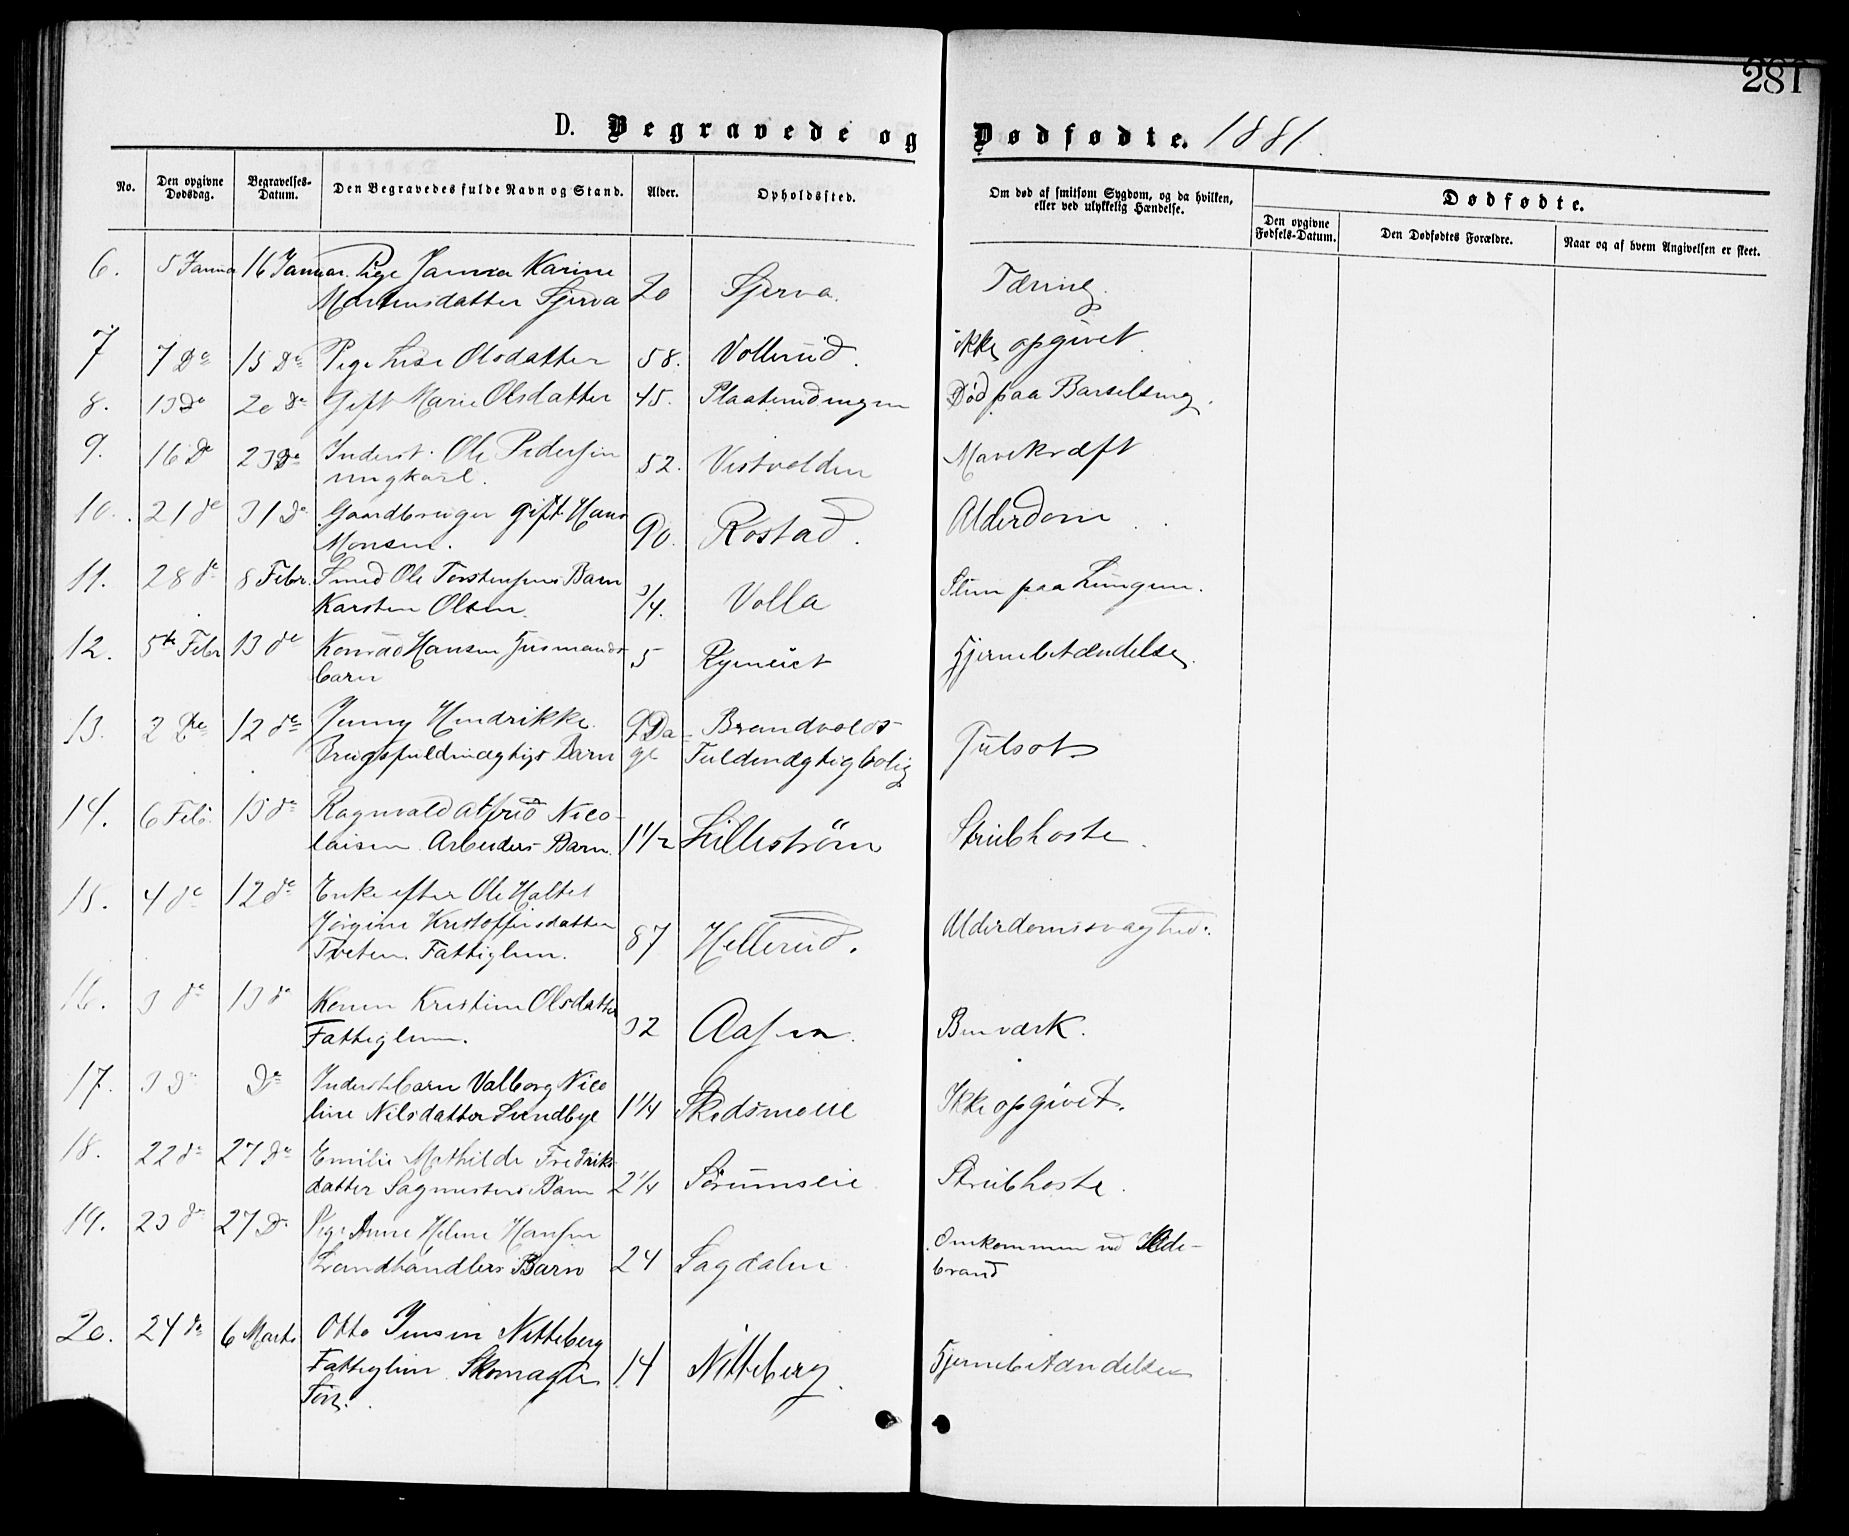 281
D. Begravede og Dødfødte. 1881.
No. Den opgivne Dødsdag. Begravelses-Datum. Den Begravedes fulde Navn og Stand. Alder. Opholdssted. Om død af smitsom Sygdom, og da hvilken, eller ved ulykkelig Hændelse. Dødfødte.
Den opgivne Fødsels-Datum. Den Dødfødtes Forældre. Naar og af hvem Angivelsen er skeet.
6. 5 Januar 16 Januar. Pige Karine
20 Sjerva. Tæring.
7 7 De 15 De Pige Lise Olsdatter 58. Vollerud. ikke opgivet.
8. 13 de 20 de Gift Marie Olsdatter 45. Død paa Barselseng.
9. 16 De 23 de Inderst. Ole Pedersen
ungkarl. 52. Vestvolden Mavekræft
10. 21 de 31 De Gaardbruger gift Hans
Monsen. 90. Rostad. Alderdom
11. 28 de 8 Febr. Smed Ole Torstensens Barn
Karsten Olsen. 3/4. Volla Slim paa Lungen.
12. 5te Febr 13 de Konrad Hansen Husmands
barn 5 Ryeneiet Hjernebetændelse.
13. 2 De 12 de Jenny Hendrikke.
Brugsfuldmægtigs Barn 9 Da-
ge Brandvolds
Fuldmægtigbolig Gulsot
14. 6 Feb. 15 de Ragnvald Alfred Nico-
laisen Arbeiders Barn. 1 1/2 Lillestrøm Strubhoste.
15. 4 de 12 de Enke efter Ole Halte
Jørgine Kristoffersdatter
Tveten. Fattiglem. 87 Hellerud. Alderdomssvaghed.
16. 3 de 13 de Karen Kristine Olsdatter
Fattiglem. 32 Aasen. Benværk.
17. 3 De De Inderstebarn Valborg Nico
line Nilsdatter Sundbye 1 1/4 Skedsmoeie Ikke opgivet.
18. 22 de 27 De Emilie Mathilde Fredriks
datter Sagmesters Barn 2 1/4 Sørumseie Strubhoste.
19. 23 de 27 De Pige Anne Helene Hansen
Landhandlers Barn 24 Sagdalen. Omkommen ved Ilde-
brand
20. 24 de 6 Marts Otto Jensen Nitteberg
Fattiglem Skomager
14 Nitteberg. Hjernebetændelse